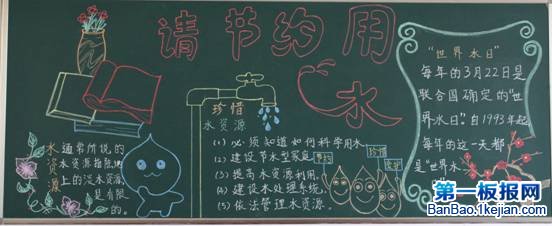 请节约用水
水资源
通常所说的
水资源指陆地
上的淡水资源,
是有限
的。
珍惜
水资源
(1)必须知道如何科学用水
(2)建设节水型家庭
(3)提高水资源利用。
(4)建设水处理系统。
(5)依法管理水资源。
节约
珍惜
"世界水日"
每年的3月22日是
联合国确定的"世
界水日"。自1993年起
每年的这一天都
是"世界水
第一板报网
BanBao.1kejian.com